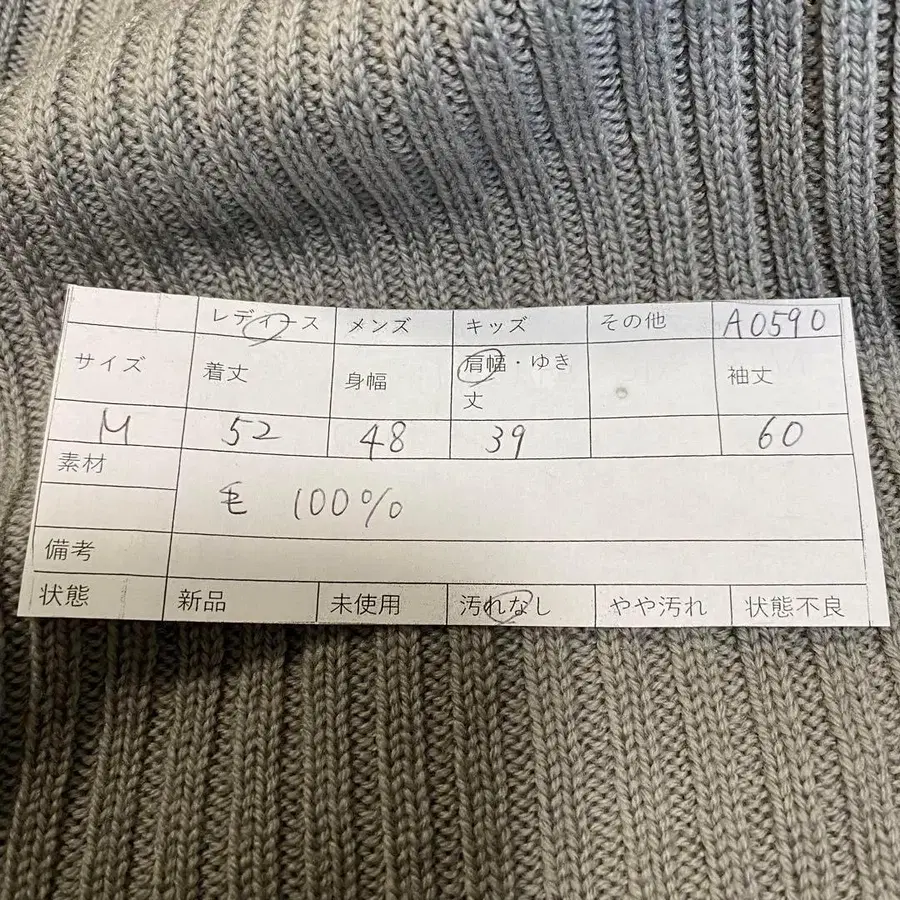 レディース メンズ キッズ その他 A0590
サイズ 着丈 身幅 肩幅・ゆき丈 袖丈
M 52 48 39 60
素材 毛 100%
備考
状態 新品 未使用 汚れなし やや汚れ 状態不良